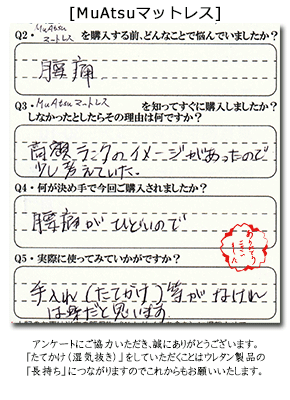 [MuAtsuマットレス]
Q2・MuAtsuマットレスを購入する前、どんなことで悩んでいましたか?
腰痛
Q3・MuAtsuマットレスを知ってすぐに購入しましたか?
しなかったとしたらその理由は何ですか?
高額ランクのイメージがあったので
少し考えていた。
Q4・何が決め手で今回ご購入されましたか?
腰痛がひどいので
Q5・実際に使ってみていかがですか?
手入れ(たてかけ)等がなければ
は楽だと思います
アンケートにご協力いただき、誠にありがとうございます。
『たてかけ(湿気抜き)』をしていただくことはウレタン製品の
『長持ち』につながりますのでこれからもお願いいたします。